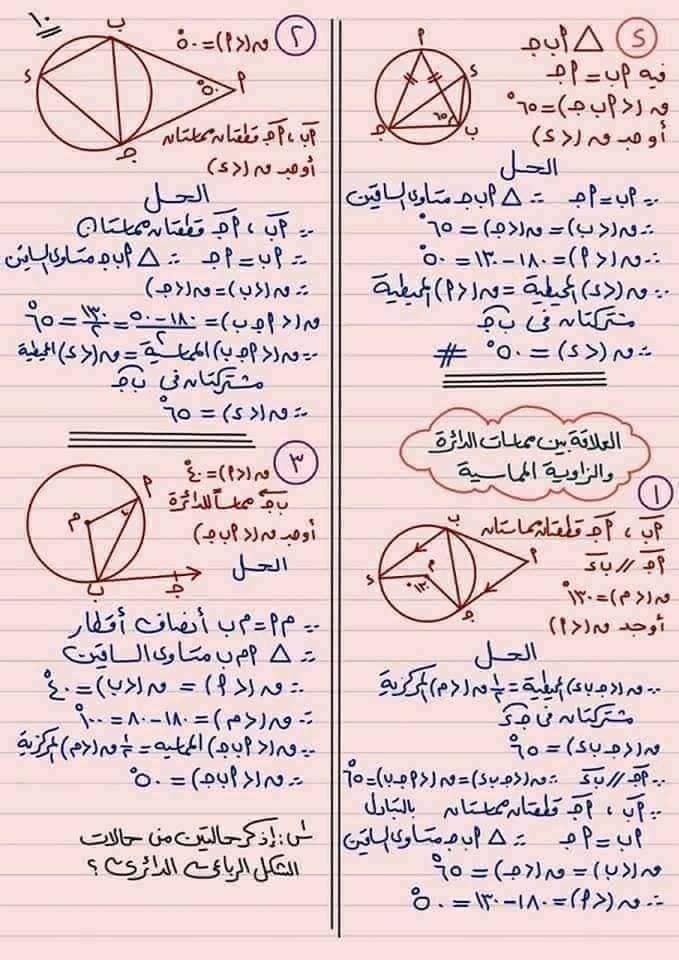 ١٠
٥
△ ٢ ب جـ
فيه ٢ب = ٢جـ
ق(<٢ب جـ) = ٦٥°
أوجد ق(<٥)
٢
٥
ب
جـ
٦٥°
الحل
∵ ٢ب = ٢جـ ∴ △ ٢ب جـ متساوى الساقين
∴ ق(<ب) = ق(<جـ) = ٦٥°
∴ ق(<٢) = ١٨٠ - ١٣٠ = ٥٠°
∵ ق(<٥) المحيطية = ق(<٢) المحيطية
مشتركتان فى ب جـ
∴ ق(<٥) = ٥٠° #
العلاقة بين مماسات الدائرة
والزاوية المماسية
١
٢ب ، ٢جـ قطعتان مماستان
٢جـ // ب٥
ق(<م) = ١٣٠°
أوجد ق(<٢)
ب
٢
٥
م
١٣٠°
جـ
الحل
∵ ق(<جـ ب٥) المحيطية = ١/٢ ق(<م) المركزية
مشتركتان فى جـ٥
ق(<جـ ب٥) = ٦٥°
∵ ٢جـ // ب٥ ∴ ق(<جـ ب٥) = ق(<٢جـ ب) = ٦٥°
∵ ٢ب ، ٢جـ قطعتان مماستان بالتبادل
٢ب = ٢جـ ∴ △ ٢ب جـ متساوى الساقين
ق(<ب) = ق(<جـ) = ٦٥°
∴ ق(<٢) = ١٨٠ - ١٣٠ = ٥٠°
٢
ق(<٢) = ٥٠°
ب
٥
٢
٥٠°
جـ
٢ب ، ٢جـ قطعتان مماستان
أوجد ق(<٥)
الحل
∵ ٢ب ، ٢جـ قطعتان مماستان
∵ ٢ب = ٢جـ ∴ △ ٢ب جـ متساوى الساقين
∴ ق(<ب) = ق(<جـ)
ق(<٢جـ ب) = ١٨٠ - ٥٠ / ٢ = ١٣٠ / ٢ = ٦٥°
∵ ق(<٢جـ ب) المماسية = ق(<٥) المحيطية
مشتركتان فى ب جـ
∴ ق(<٥) = ٦٥°
٣
ق(<٢) = ٤٠°
ب جـ مماساً للدائرة
أوجد ق(<٢ب جـ)
٢
م
ب
جـ
الحل
∵ م٢ = م ب أنصاف أقطار
∴ △ ٢م ب متساوى الساقين
∴ ق(<٢) = ق(<ب) = ٤٠°
∴ ق(<م) = ١٨٠ - ٨٠ = ١٠٠°
∵ ق(<٢ب جـ) المماسية = ١/٢ ق(<م) المركزية
∴ ق(<٢ب جـ) = ٥٠°
س: إذكر حالتين من حالات
الشكل الرباعى الدائرى ؟